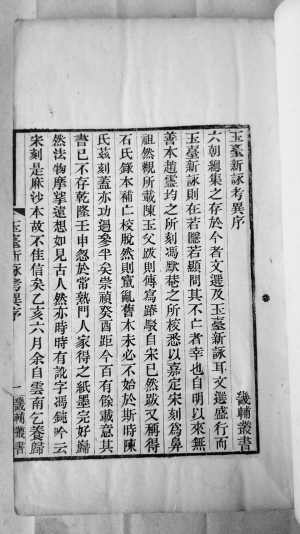 玉臺新詠考異序
六朝總集之存於今者文選及玉臺新詠耳文選盛行而
玉臺新詠則在若隱若顯間其不亡者幸也自明以來無
善本趙靈均之所刻馮默菴之所校悉以嘉定宋刻爲鼻
祖然觀所載陳玉父跋則傳寫踳駁自宋已然跋又稱得
石氏錄本補亡校脫然則竄亂舊本未必不始於斯時陳
氏茲刻蓋亦功過參半矣崇禎癸酉距今百有餘載意其
書已不存乾隆壬申忽於常熟門人家得之紙墨完好歸
然法物摩挲遐想如見古人然亦時時有訛字馮鈍吟云
宋刻是麻沙本故不佳信矣乙亥六月余自雲南乞養歸
玉臺新詠考異序
一
畿輔叢書
畿輔叢書